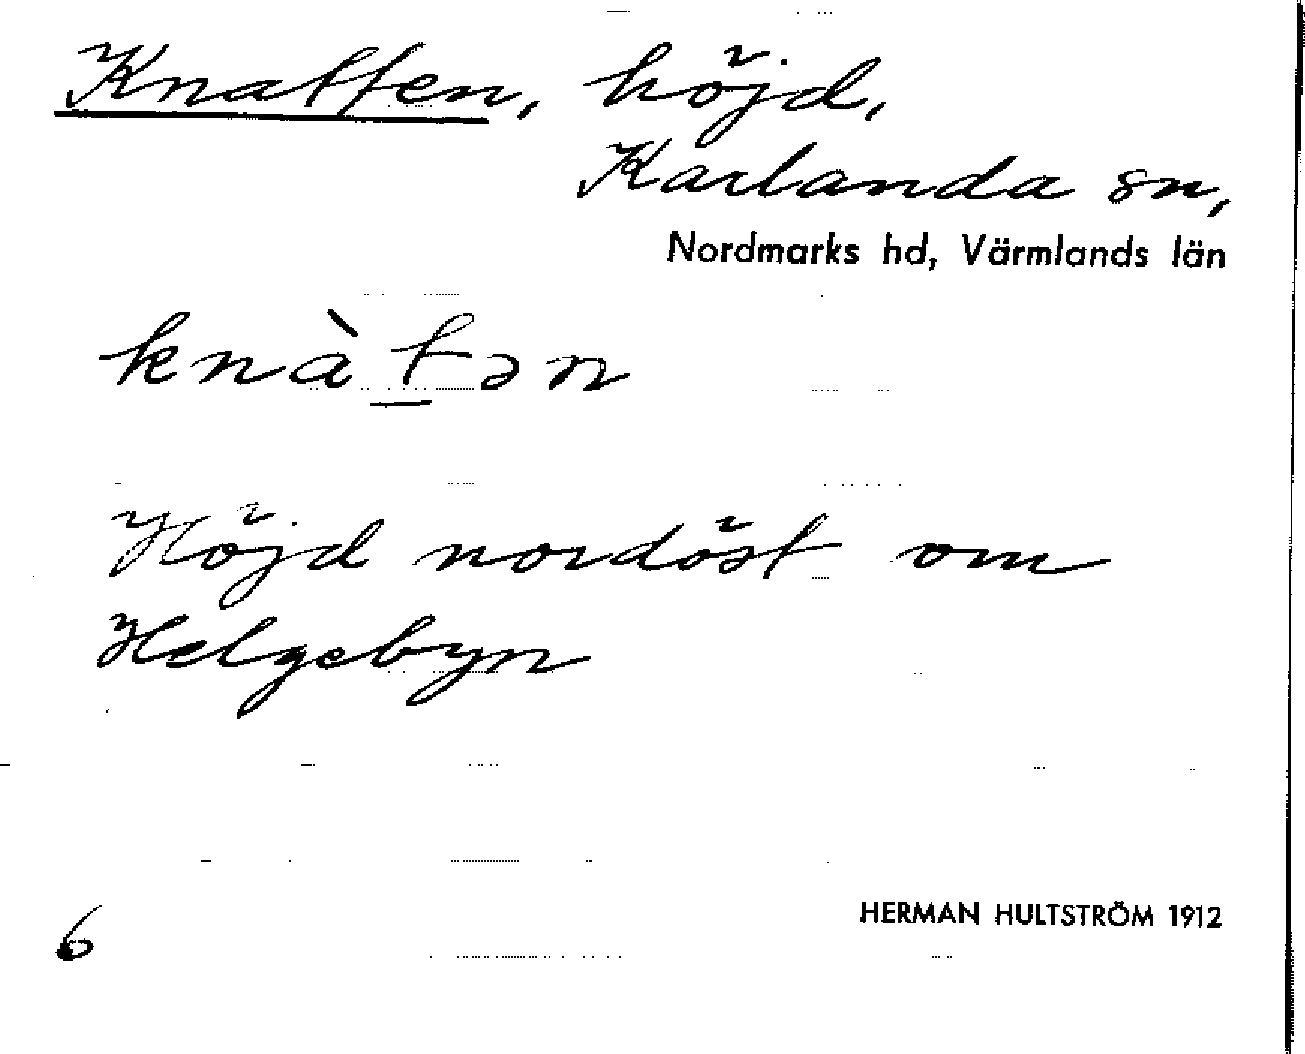 Knatten, höjd,
Karlanda sn,
Nordmarks hd, Värmlands län
knàt̲ən
Höjd nordöst om
Helgebyn
6
HERMAN HULTSTRÖM 1912